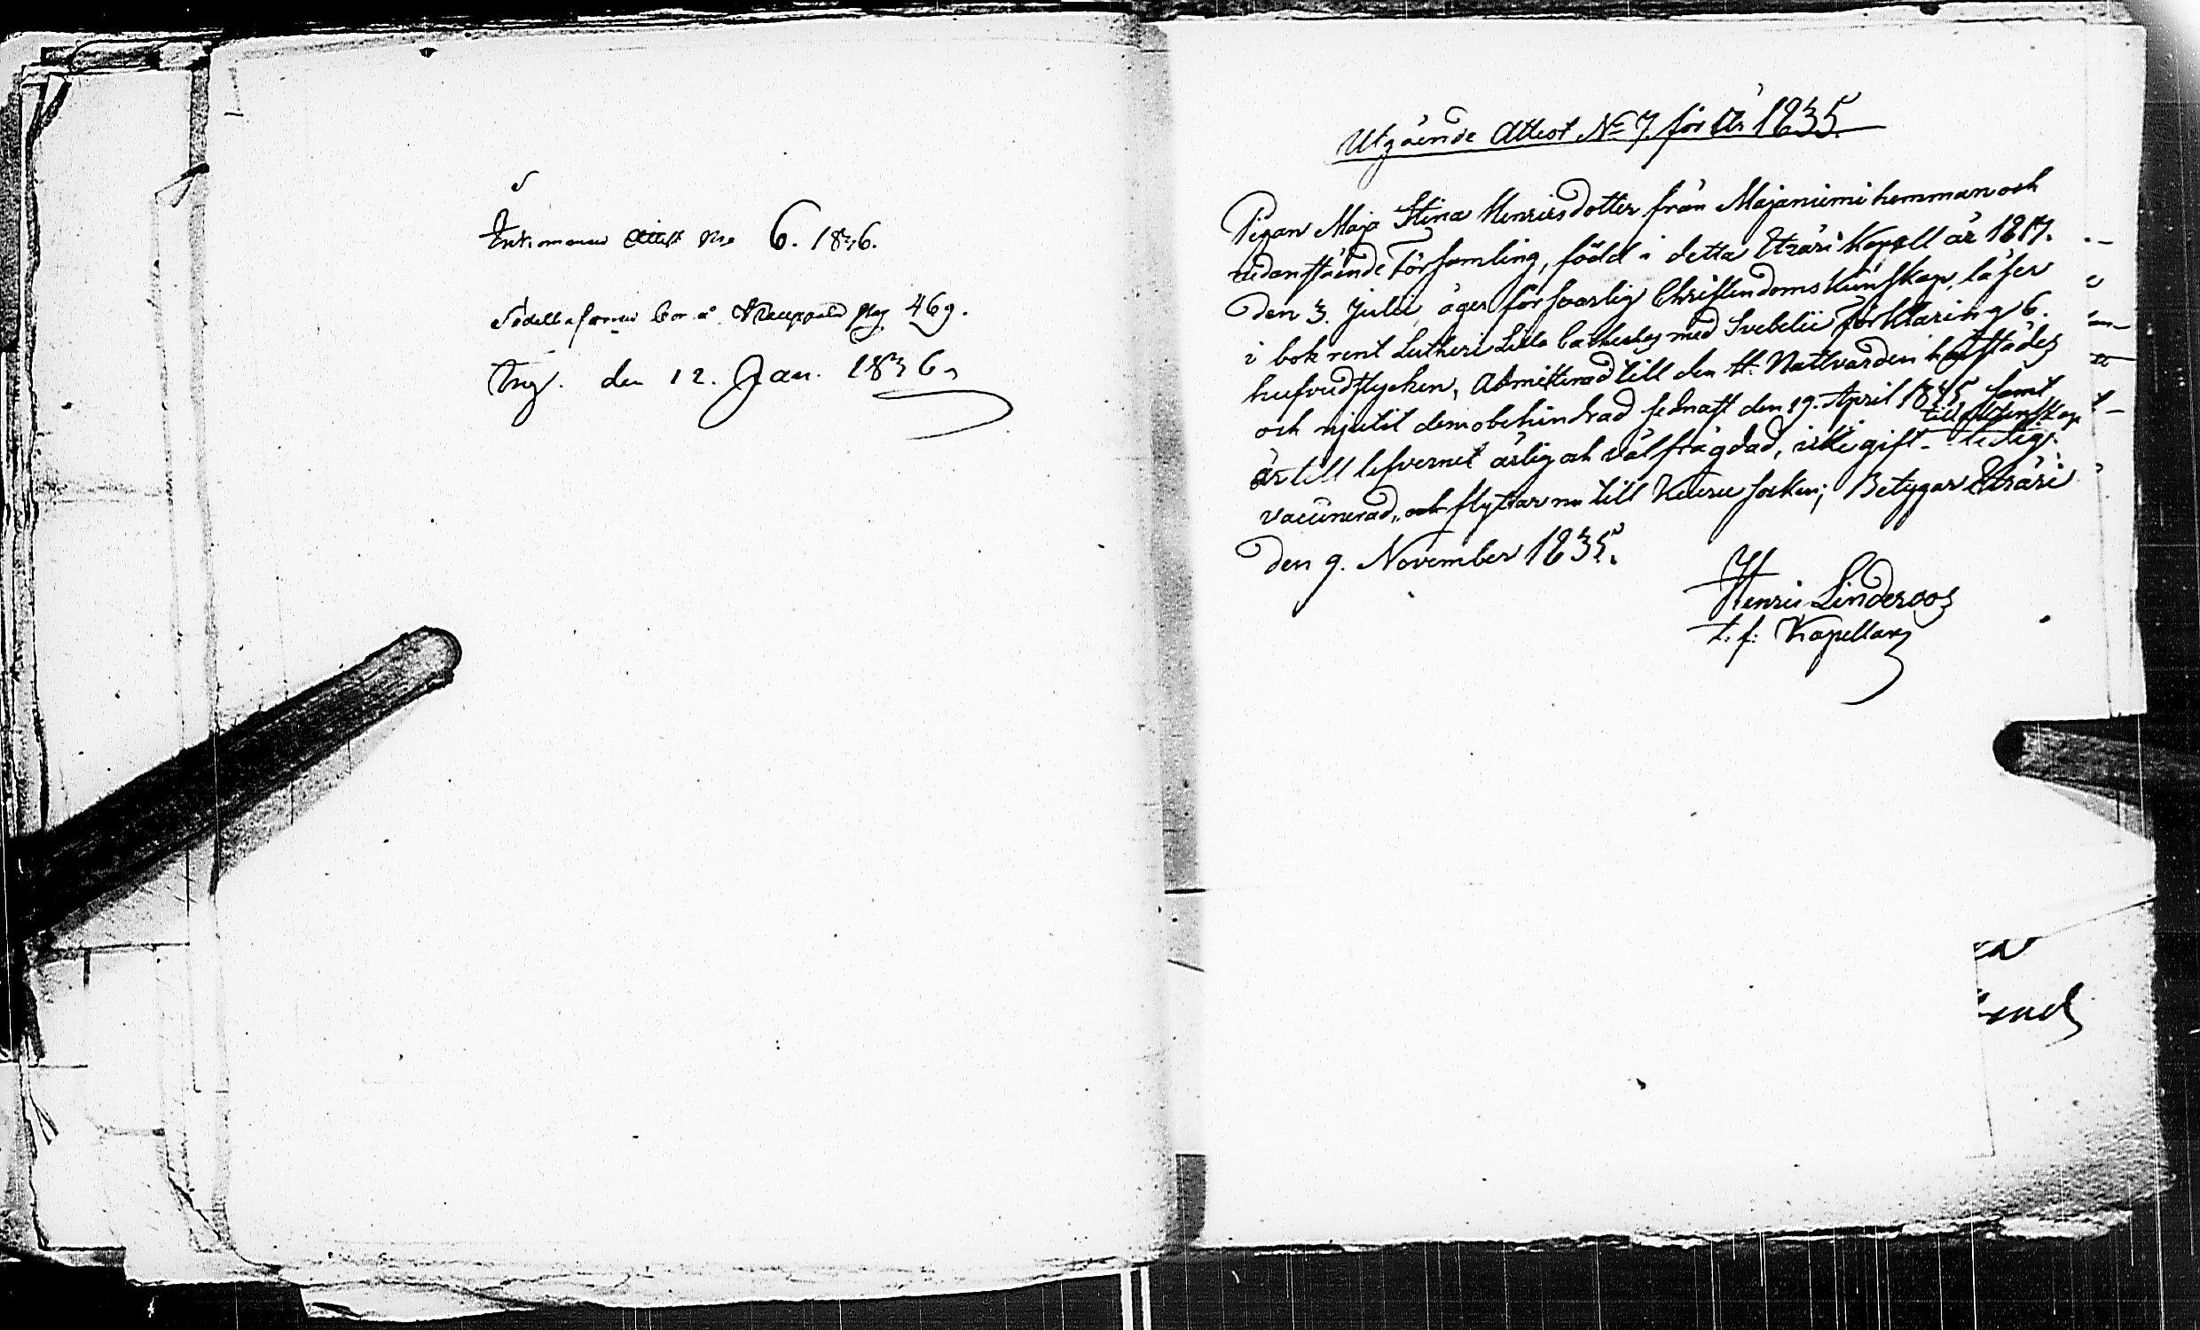 Inkommen Attest No 6. 1836.
pag 469.
den 12. Jan. 1836
Utgående Attest No 7. för År 1835.
Pigan Maja Stina Henricsdotter från Majaniemi hemman och
nedanstående Församling, född i detta Etzäri Kapell år 1817.
den 3. Julii, äger försvarlig Christendoms kunskap, läser
i bok rent Lutheri Lilla Catheches med Svebelii Förklaring 6.
hufvudstycken, Admitterad till den H. Nattvarden härstädes
och njutit den obehindrad sednast den 19. April 1835 samt
är till lefvernet ärlig och välfrägdad, icke gift - ledig
till äktenskap
vaccinerad, och flyttar nu till Keuru socken; Betygar Etzäri
den 9. November 1835.
Henric Linderoos
t. f. Kapellan